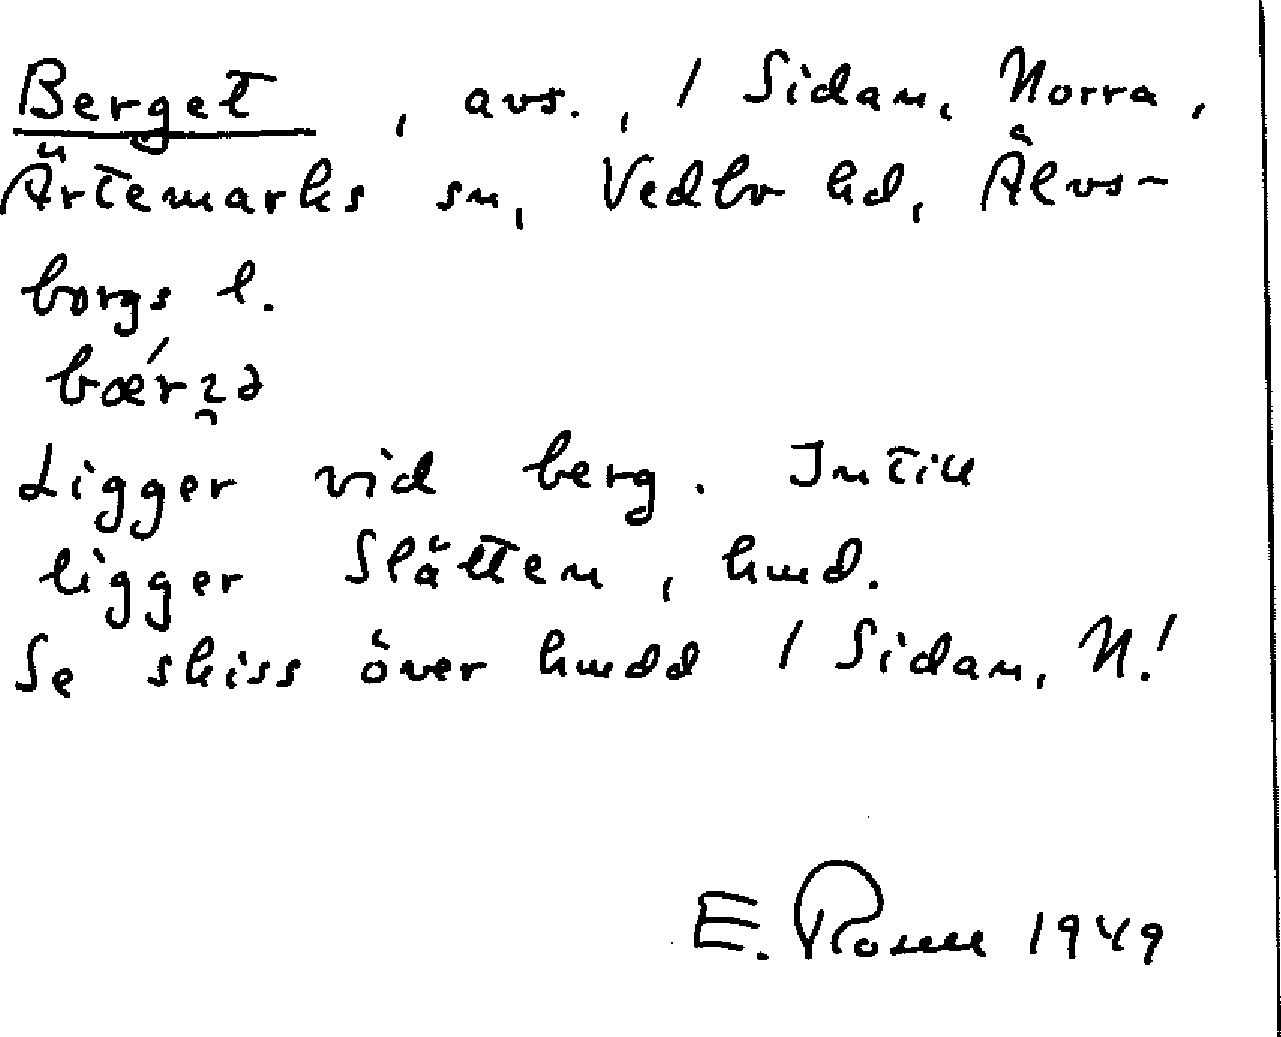 Berget, avs., / Sidan, Norra,
Ärtemarks sn, Vedbo hd, Älvs-
borgs l.
Ligger vid berg. Intill
ligger Slätten, hmd.
Se skiss över hmdd / Sidan, N.!
E. 1949